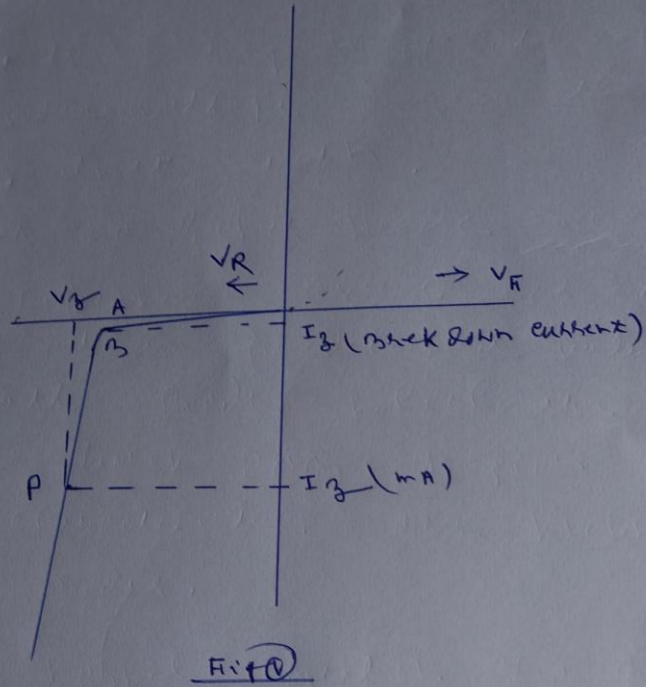 VR
← → VF
Vz A
B Iz (Break down current)
P Iz (mA)
Fig ①